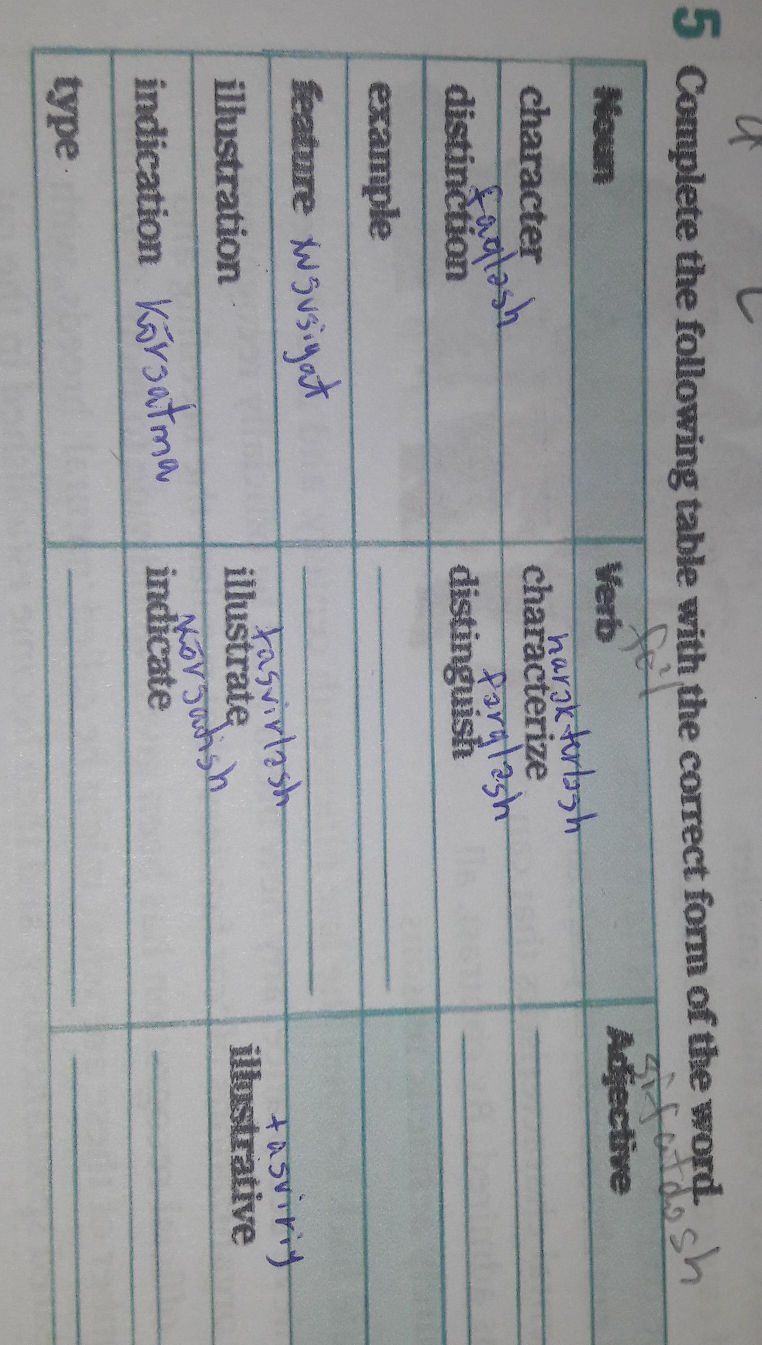 5 Complete the following table with the correct form of the word.
fe'l sifatdosh
Noun Verb Adjective
harakterlash
character characterize
farqlash farqlash
distinction distinguish
example
feature xususiyat
tasvirlash tasviriy
illustration illustrate illustrative
ko'rsatish
indication ko'rsatma indicate
type